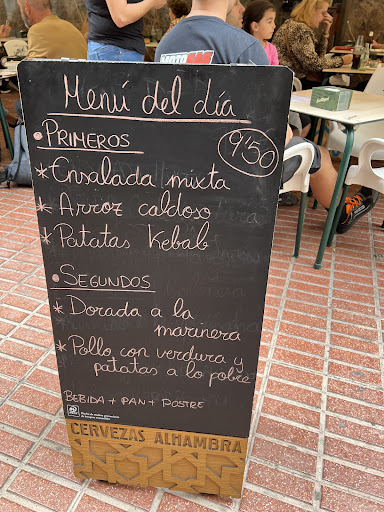 Menú del día
• PRIMEROS
9'50
* Ensalada mixta
* Arroz caldoso
* Patatas Kebab
• SEGUNDOS
* Dorada a la
marinera
* Pollo con verdura y
patatas a lo pobre
BEBIDA + PAN + POSTRE
CERVEZAS ALHAMBRA